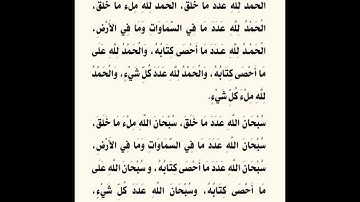 الْحَمْدُ لِلَّهِ عَدَدَ مَا خَلَقَ، الْحَمْدُ لِلَّهِ مِلْءَ مَا خَلَقَ،
الْحَمْدُ لِلَّهِ عَدَدَ مَا فِي السَّمَاوَاتِ وَمَا فِي الْأَرْضِ،
الْحَمْدُ لِلَّهِ عَدَدَ مَا أَحْصَى كِتَابُهُ، وَالْحَمْدُ لِلَّهِ عَلَى
مَا أَحْصَى كِتَابُهُ، وَالْحَمْدُ لِلَّهِ عَدَدَ كُلِّ شَيْءٍ، وَالْحَمْدُ
لِلَّهِ مِلْءَ كُلِّ شَيْءٍ.
سُبْحَانَ اللَّهِ عَدَدَ مَا خَلَقَ، سُبْحَانَ اللَّهِ مِلْءَ مَا خَلَقَ،
سُبْحَانَ اللَّهِ عَدَدَ مَا فِي السَّمَاوَاتِ وَمَا فِي الْأَرْضِ،
سُبْحَانَ اللَّهِ عَدَدَ مَا أَحْصَى كِتَابُهُ، وَ سُبْحَانَ اللَّهِ عَلَى
مَا أَحْصَى كِتَابُهُ، وَسُبْحَانَ اللَّهِ عَدَدَ كُلِّ شَيْءٍ،